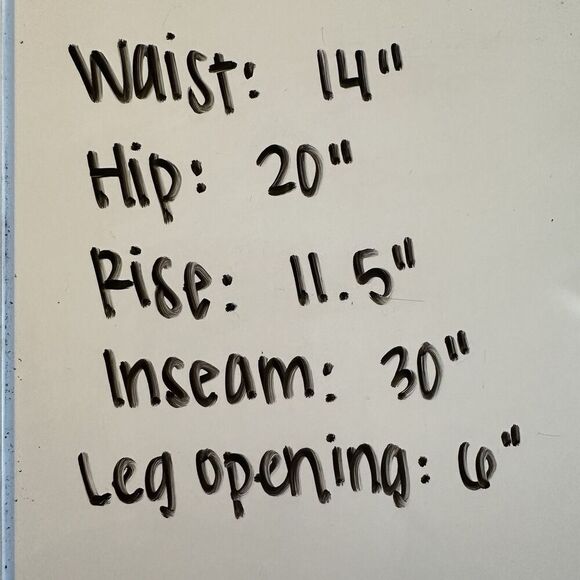 Waist: 14"
Hip: 20"
Rise: 11.5"
Inseam: 30"
Leg opening: 6"